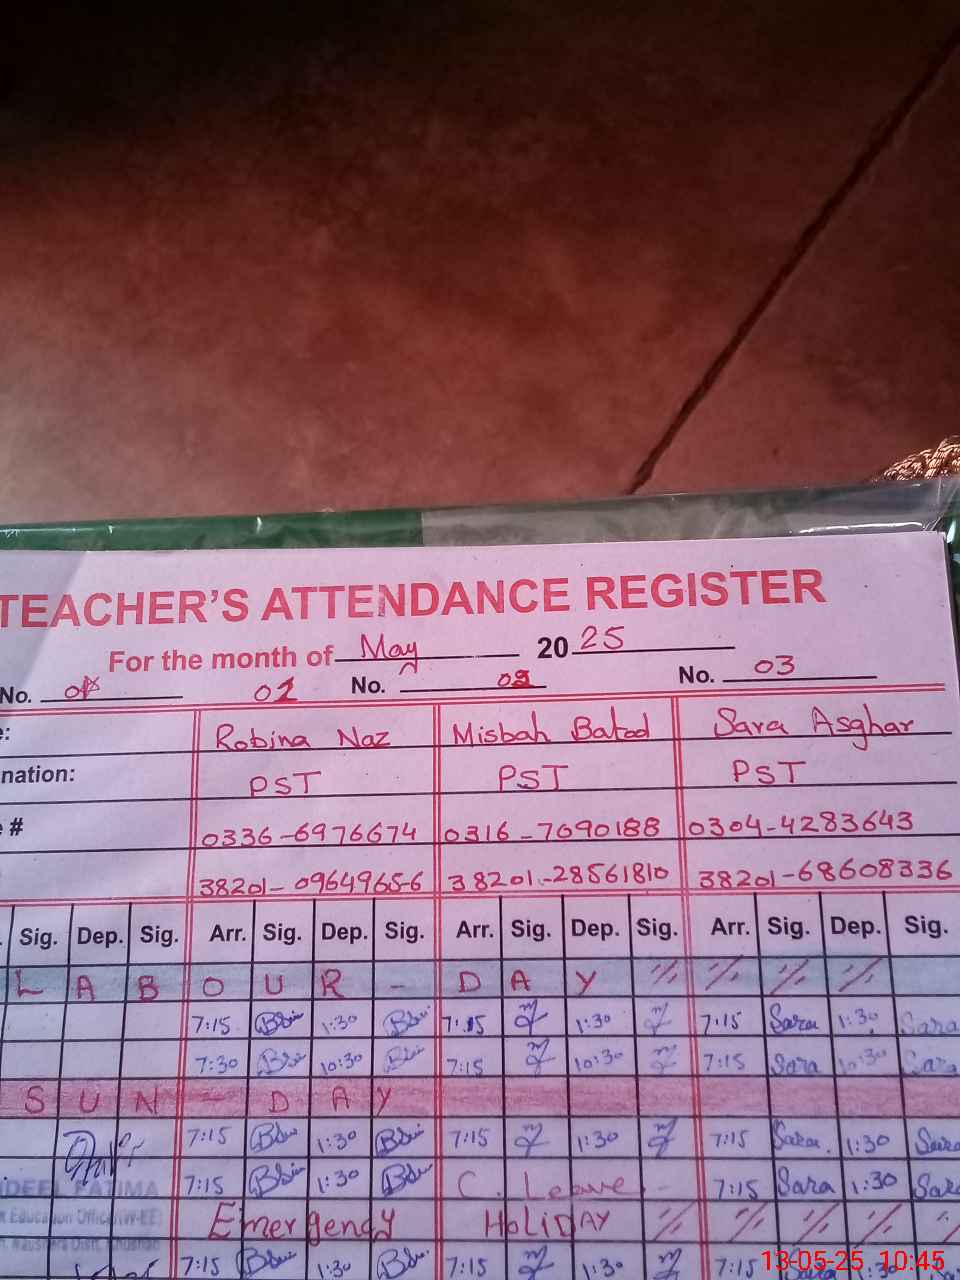 TEACHER'S ATTENDANCE REGISTER
For the month of May 2025
No. 01 No. 02 No. 03
Robina Naz Misbah Batool Sara Asghar
nation: PST PST PST
# 0336-6976674 0316-7690188 0304-4283643
38201-0964965-6 38201-28561810 38201-68608336
Sig. Dep. Sig. Arr. Sig. Dep. Sig. Arr. Sig. Dep. Sig. Arr. Sig. Dep. Sig.
LABOUR - DAY
7:15 1:30 7:15 1:30 7:15 Sara 1:30 Sara
7:30 10:30 7:15 10:30 7:15 Sara 10:30 Sara
SUN - DAY
7:15 1:30 7:15 1:30 7:15 Sara 1:30 Sara
7:15 1:30 C. Leave - 7:15 Sara 1:30 Sara
FATIMA
Emergency HoliDAY
7:15 1:30 7:15 1:30 7:15 Sara
13-05-25 10:45